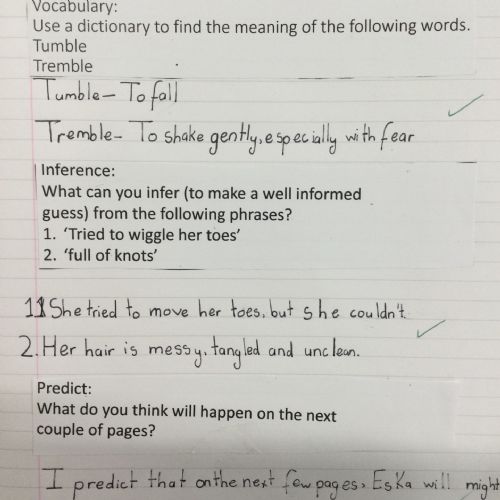 Vocabulary:
Use a dictionary to find the meaning of the following words.
Tumble
Tremble
Tumble– To fall
Tremble– To shake gently, especially with fear
Inference:
What can you infer (to make a well informed
guess) from the following phrases?
1. ‘Tried to wiggle her toes’
2. ‘full of knots’
1. She tried to move her toes, but she couldn't.
2. Her hair is messy, tangled and unclean.
Predict:
What do you think will happen on the next
couple of pages?
I predict that on the next few pages, Eska will might